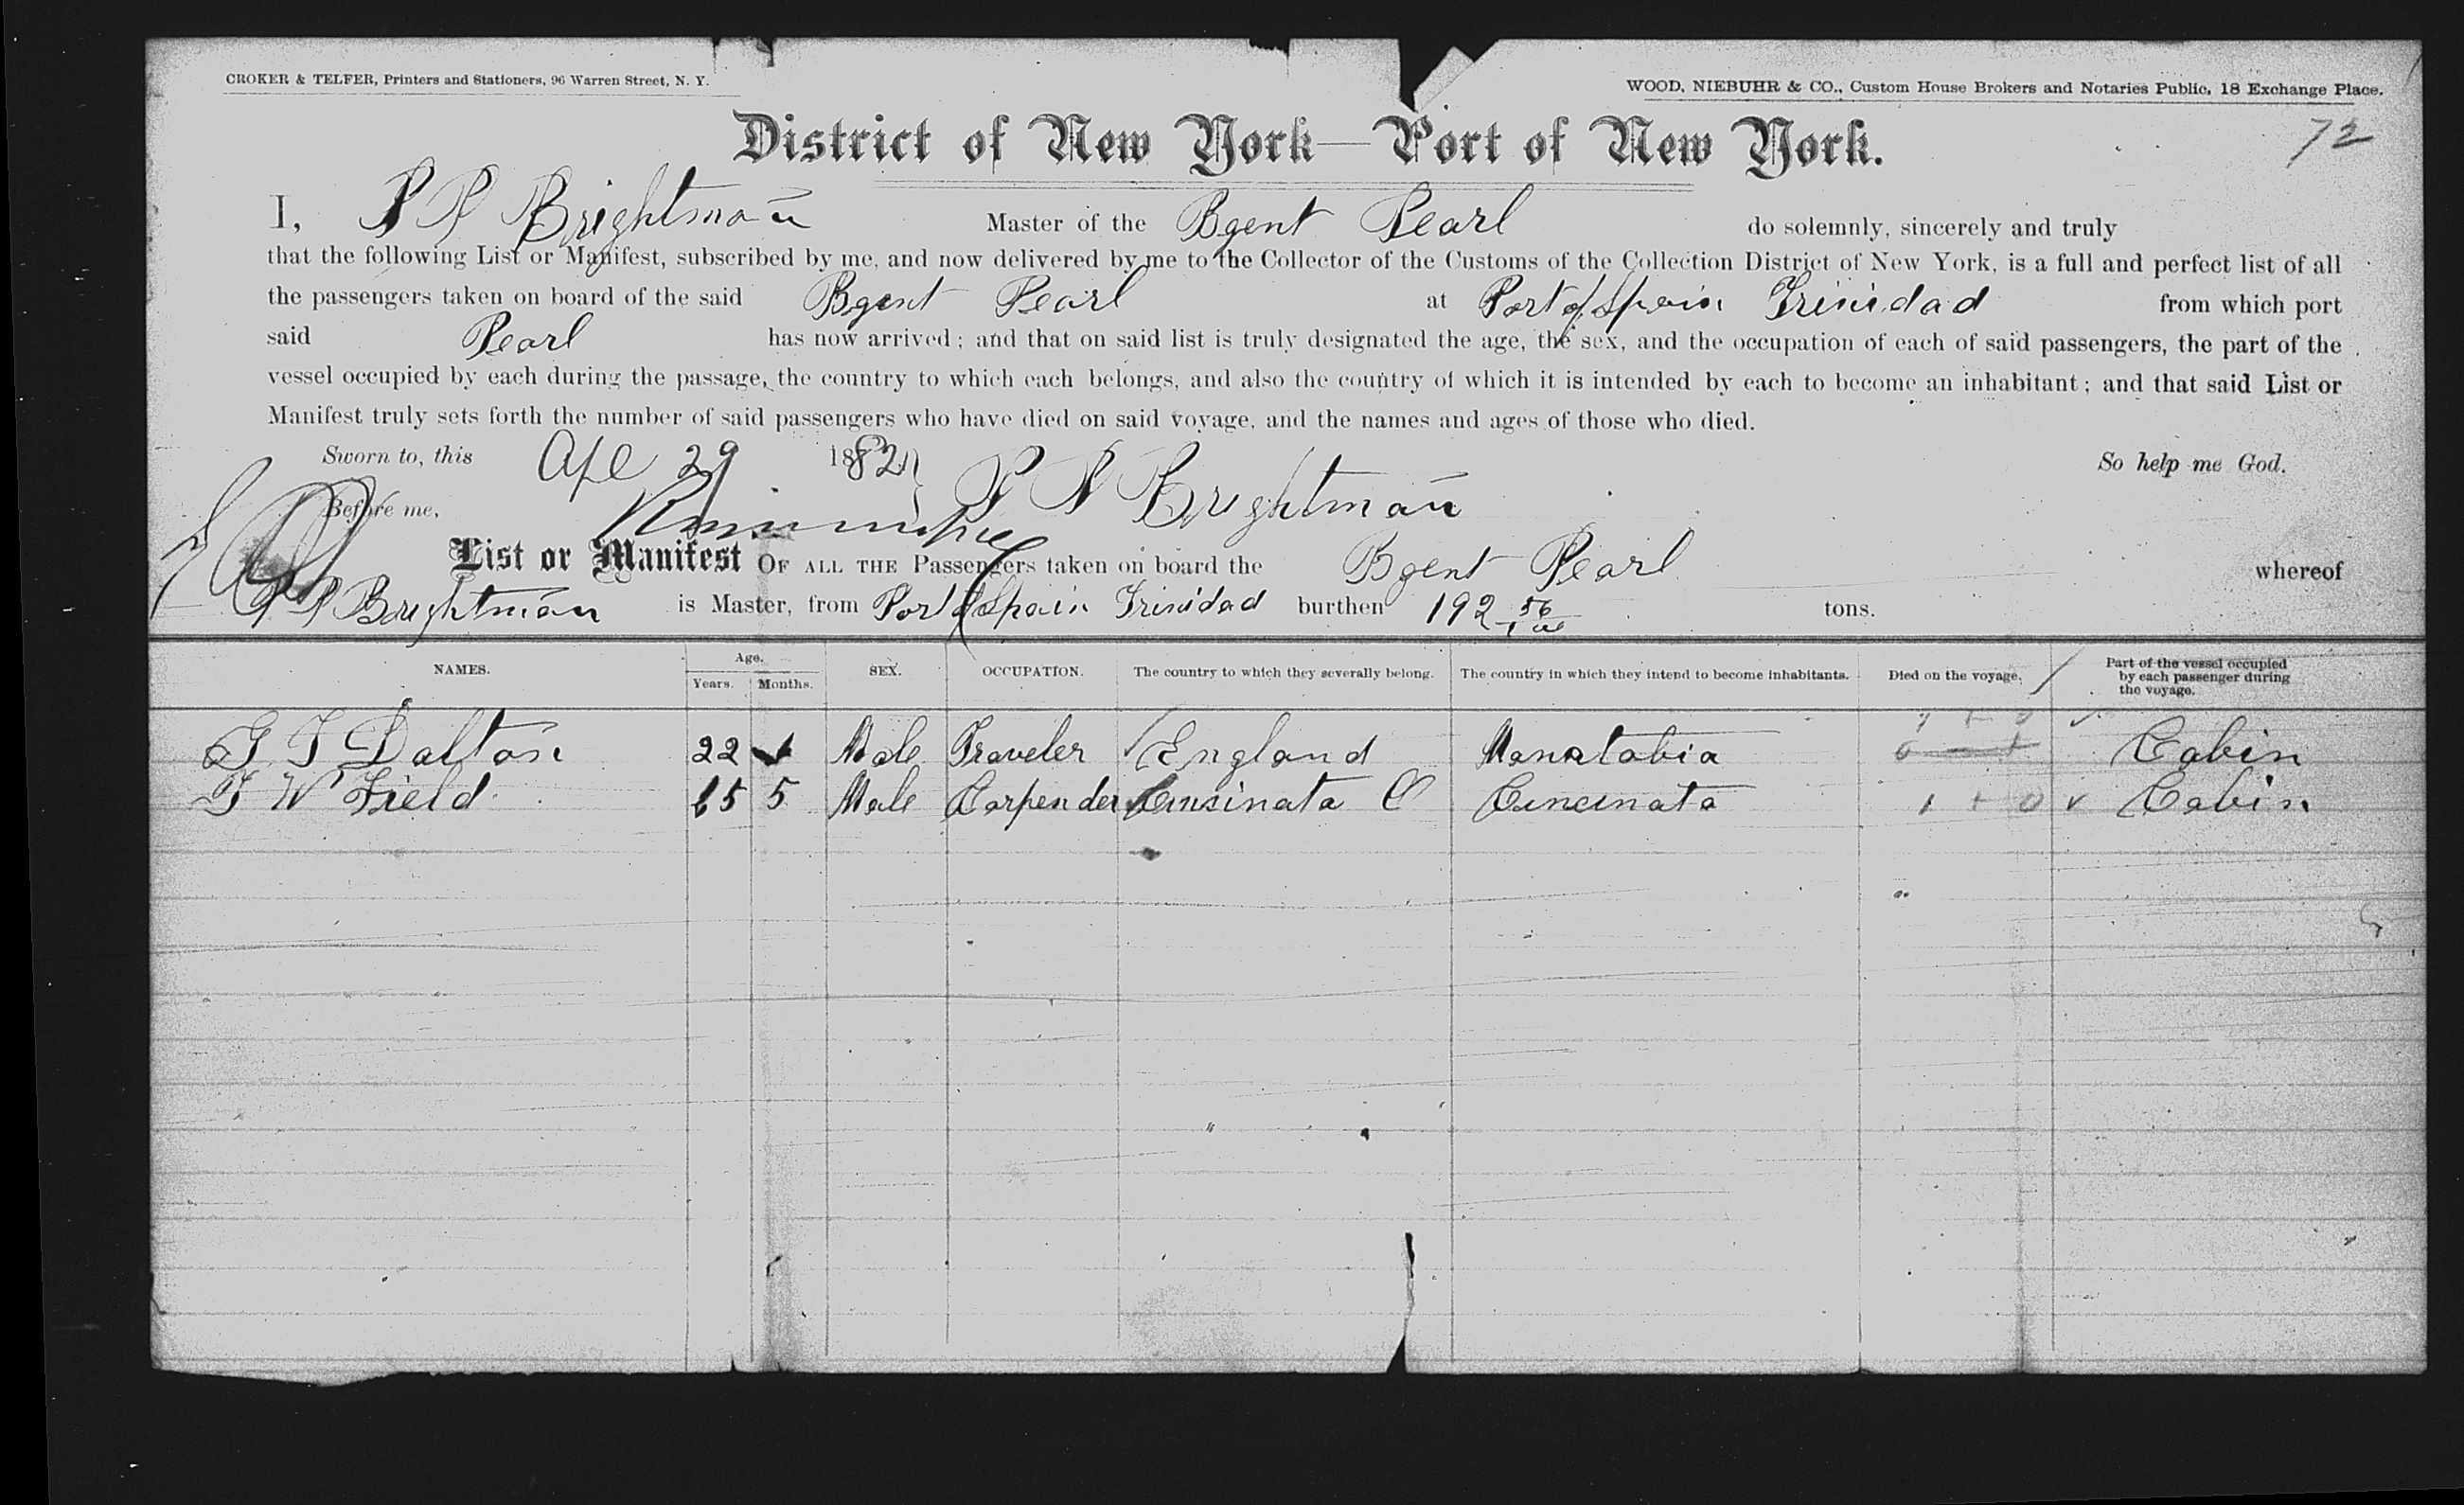 CROKER & TELFER, Printers and Stationers, 96 Warren Street, N. Y.
WOOD, NIEBUHR & CO., Custom House Brokers and Notaries Public, 18 Exchange Place.
72
District of New York—Port of New York.
I, P P Brightman Master of the Bgent Pearl do solemnly, sincerely and truly
that the following List or Manifest, subscribed by me, and now delivered by me to the Collector of the Customs of the Collection District of New York, is a full and perfect list of all
the passengers taken on board of the said Bgent Pearl at Port of Spain Trinidad from which port
said Pearl has now arrived; and that on said list is truly designated the age, the sex, and the occupation of each of said passengers, the part of the
vessel occupied by each during the passage, the country to which each belongs, and also the country of which it is intended by each to become an inhabitant; and that said List or
Manifest truly sets forth the number of said passengers who have died on said voyage, and the names and ages of those who died.
Sworn to, this Ape 29 1882 So help me God.
P P Brightman
Before me,
List or Manifest OF ALL THE Passengers taken on board the Bgent Pearl whereof
P P Brightman is Master, from Port of Spain Trinidad burthen 192 56/100 tons.
NAMES. Age. Years. Months. SEX. OCCUPATION. The country to which they severally belong. The country in which they intend to become inhabitants. Died on the voyage. Part of the vessel occupied by each passenger during the voyage.
G T Dalton 22 Male Traveler England Manatobia Cabin
T W Field 65 5 Male Carpender Cinsinata O Cincinata 1 + 0 v Cabin